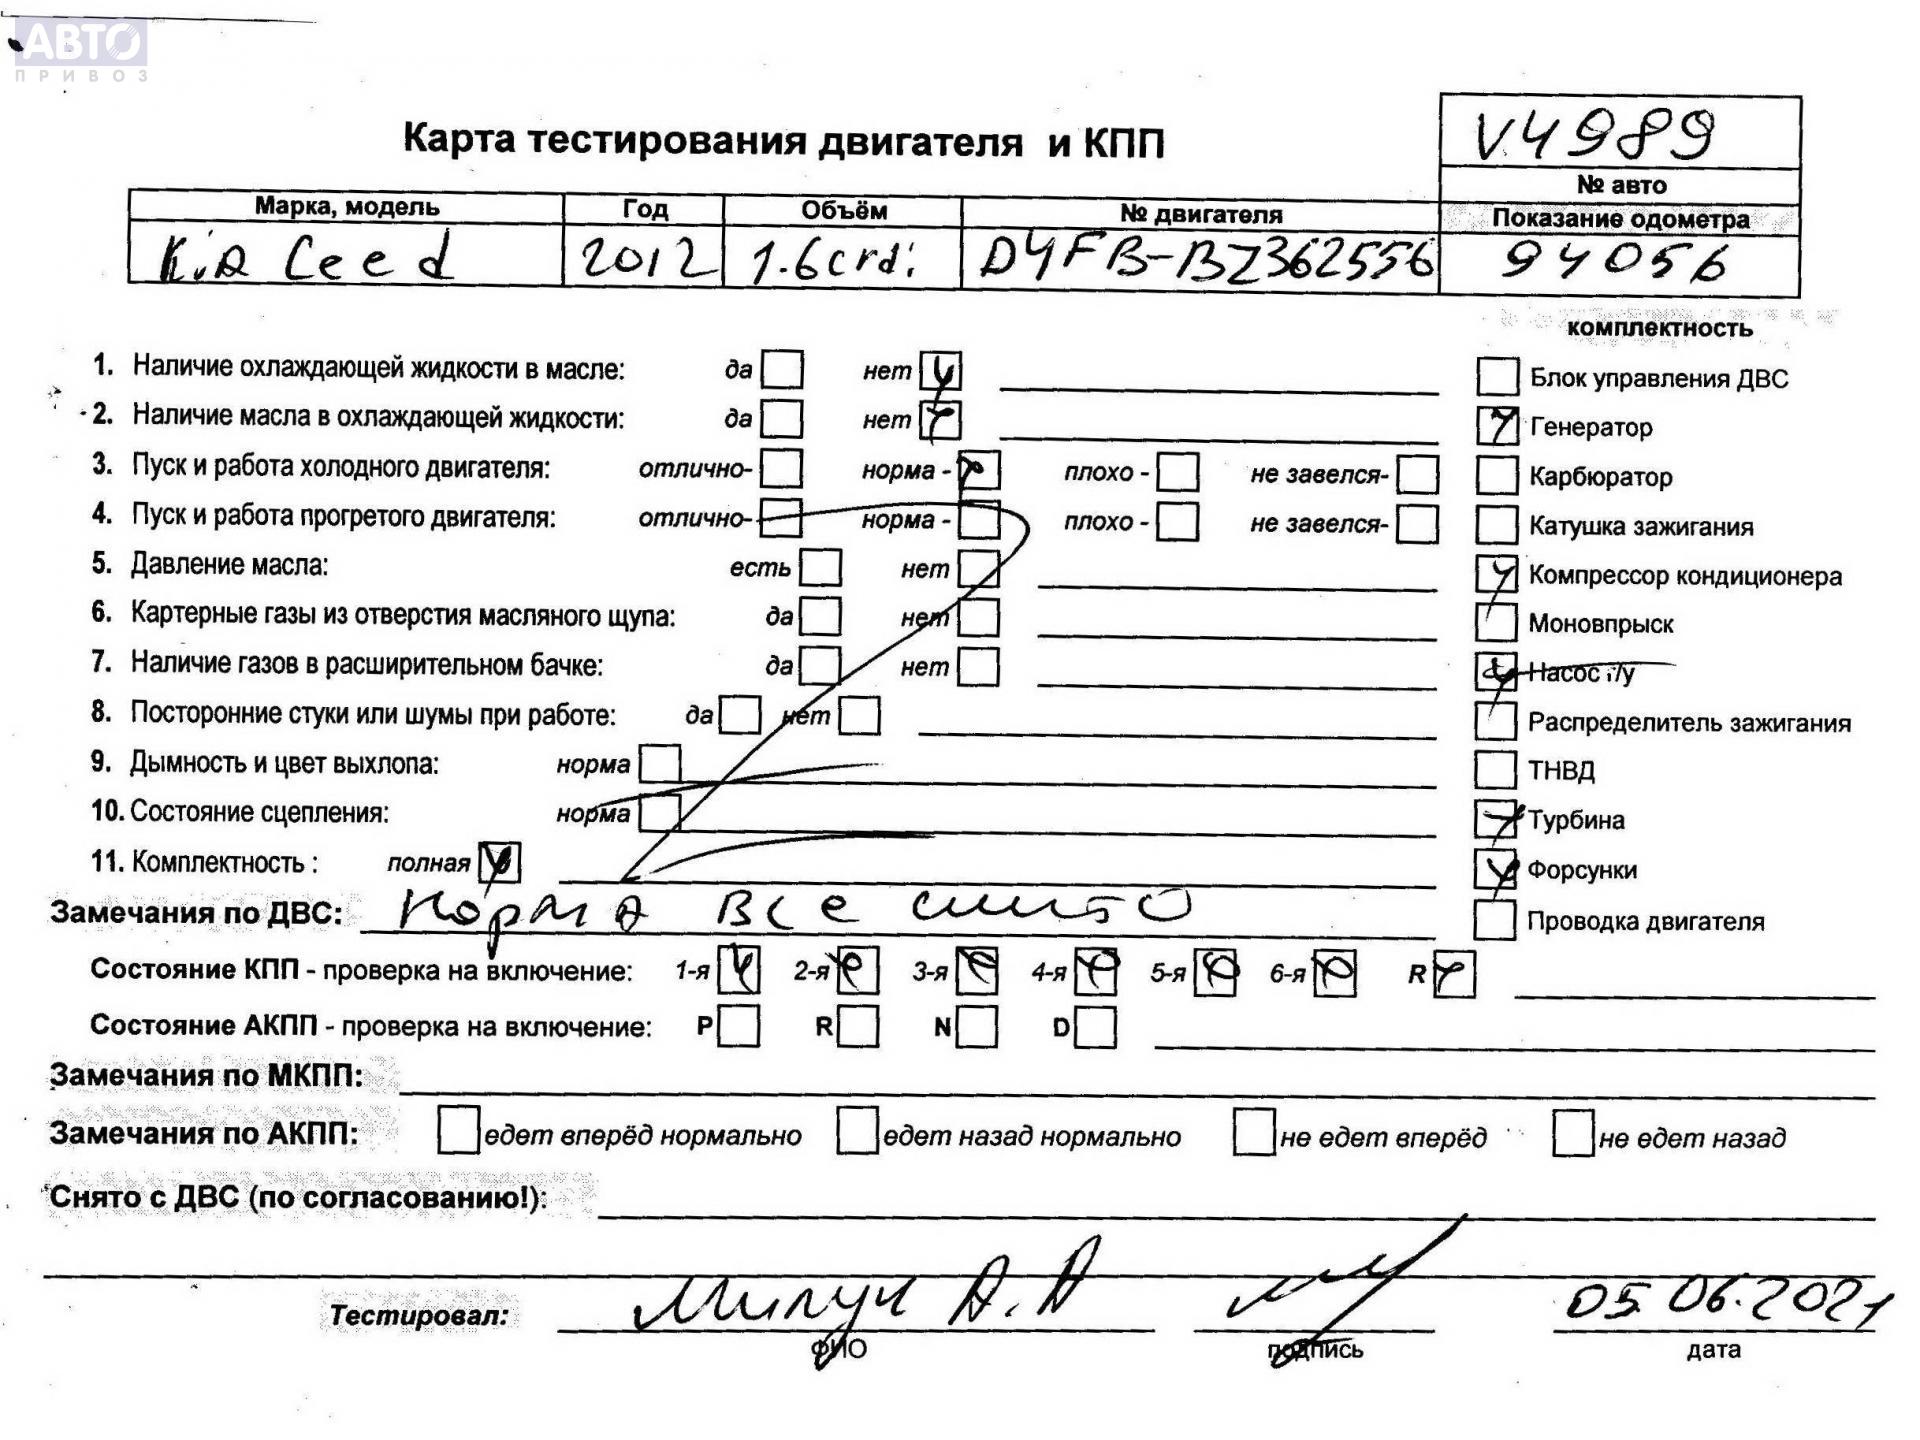 АВТО
ПРИВОЗ
V4989
Карта тестирования двигателя и КПП
№ авто
Марка, модель Год Объём № двигателя Показание одометра
Kia Ceed 2012 1.6crdi D4FB-BZ362556 94056
комплектность
1. Наличие охлаждающей жидкости в масле: да нет Блок управления ДВС
2. Наличие масла в охлаждающей жидкости: да нет Генератор
3. Пуск и работа холодного двигателя: отлично- норма - плохо - не завелся- Карбюратор
4. Пуск и работа прогретого двигателя: отлично- норма - плохо - не завелся- Катушка зажигания
5. Давление масла: есть нет Компрессор кондиционера
6. Картерные газы из отверстия масляного щупа: да нет Моновпрыск
7. Наличие газов в расширительном бачке: да нет Насос г/у
8. Посторонние стуки или шумы при работе: да нет Распределитель зажигания
9. Дымность и цвет выхлопа: норма ТНВД
10. Состояние сцепления: норма Турбина
11. Комплектность : полная Форсунки
Замечания по ДВС: Норма все Проводка двигателя
Состояние КПП - проверка на включение: 1-я 2-я 3-я 4-я 5-я 6-я R
Состояние АКПП - проверка на включение: P R N D
Замечания по МКПП:
Замечания по АКПП: едет вперёд нормально едет назад нормально не едет вперёд не едет назад
Снято с ДВС (по согласованию!):
Тестировал: А.А 05.06.2021
ФИО подпись дата